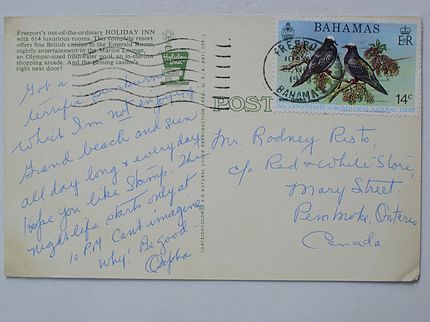 Freeport's out-of-the-ordinary HOLIDAY INN
with 614 luxurious rooms. This complete resort
offers fine British cuisine in the Emerald Room,
nightly entertainment in the Marine Lounge,
an Olympic-sized freshwater pool, an in-the-inn
shopping arcade. And the gaming casino
right next door!
Holiday Inn
Got a
terrific sunburn
which I'm not enjoying
Grand beach and sun
all day long & everyday.
Hope you like Stamp. The
nightlife starts only at
10 P.M. Can't imagine
why! Be good
Orpha
POST
BAHAMAS
E R
14c
ANNIVERSARY of the BAHAMAS NATIONAL TRUST
FREEPORT
BAHAMAS
Mr. Rodney Risto,
c/o Red & White Store,
Mary Street
Pembroke, Ontario
Canada